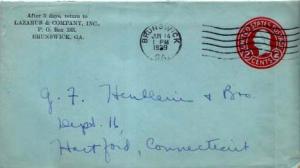 After 5 days, return to
LAZARUS & COMPANY, INC.,
P. O. Box 283,
BRUNSWICK, GA.
BRUNSWICK
JUN 14
1 PM
1939
GA.
UNITED STATES
CENTS
G. F. & Bro.
Dept. H,
Hartford, Connecticut